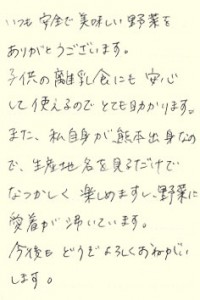 いつも安全で美味しい野菜を
ありがとうございます。
子供の離乳食にも安心
して使えるのでとても助かります。
また、私自身が熊本出身なの
で、生産地名を見るだけで
なつかしく楽しめますし、野菜に
愛着が沸いています。
今後もどうぞよろしくおねがい
します。